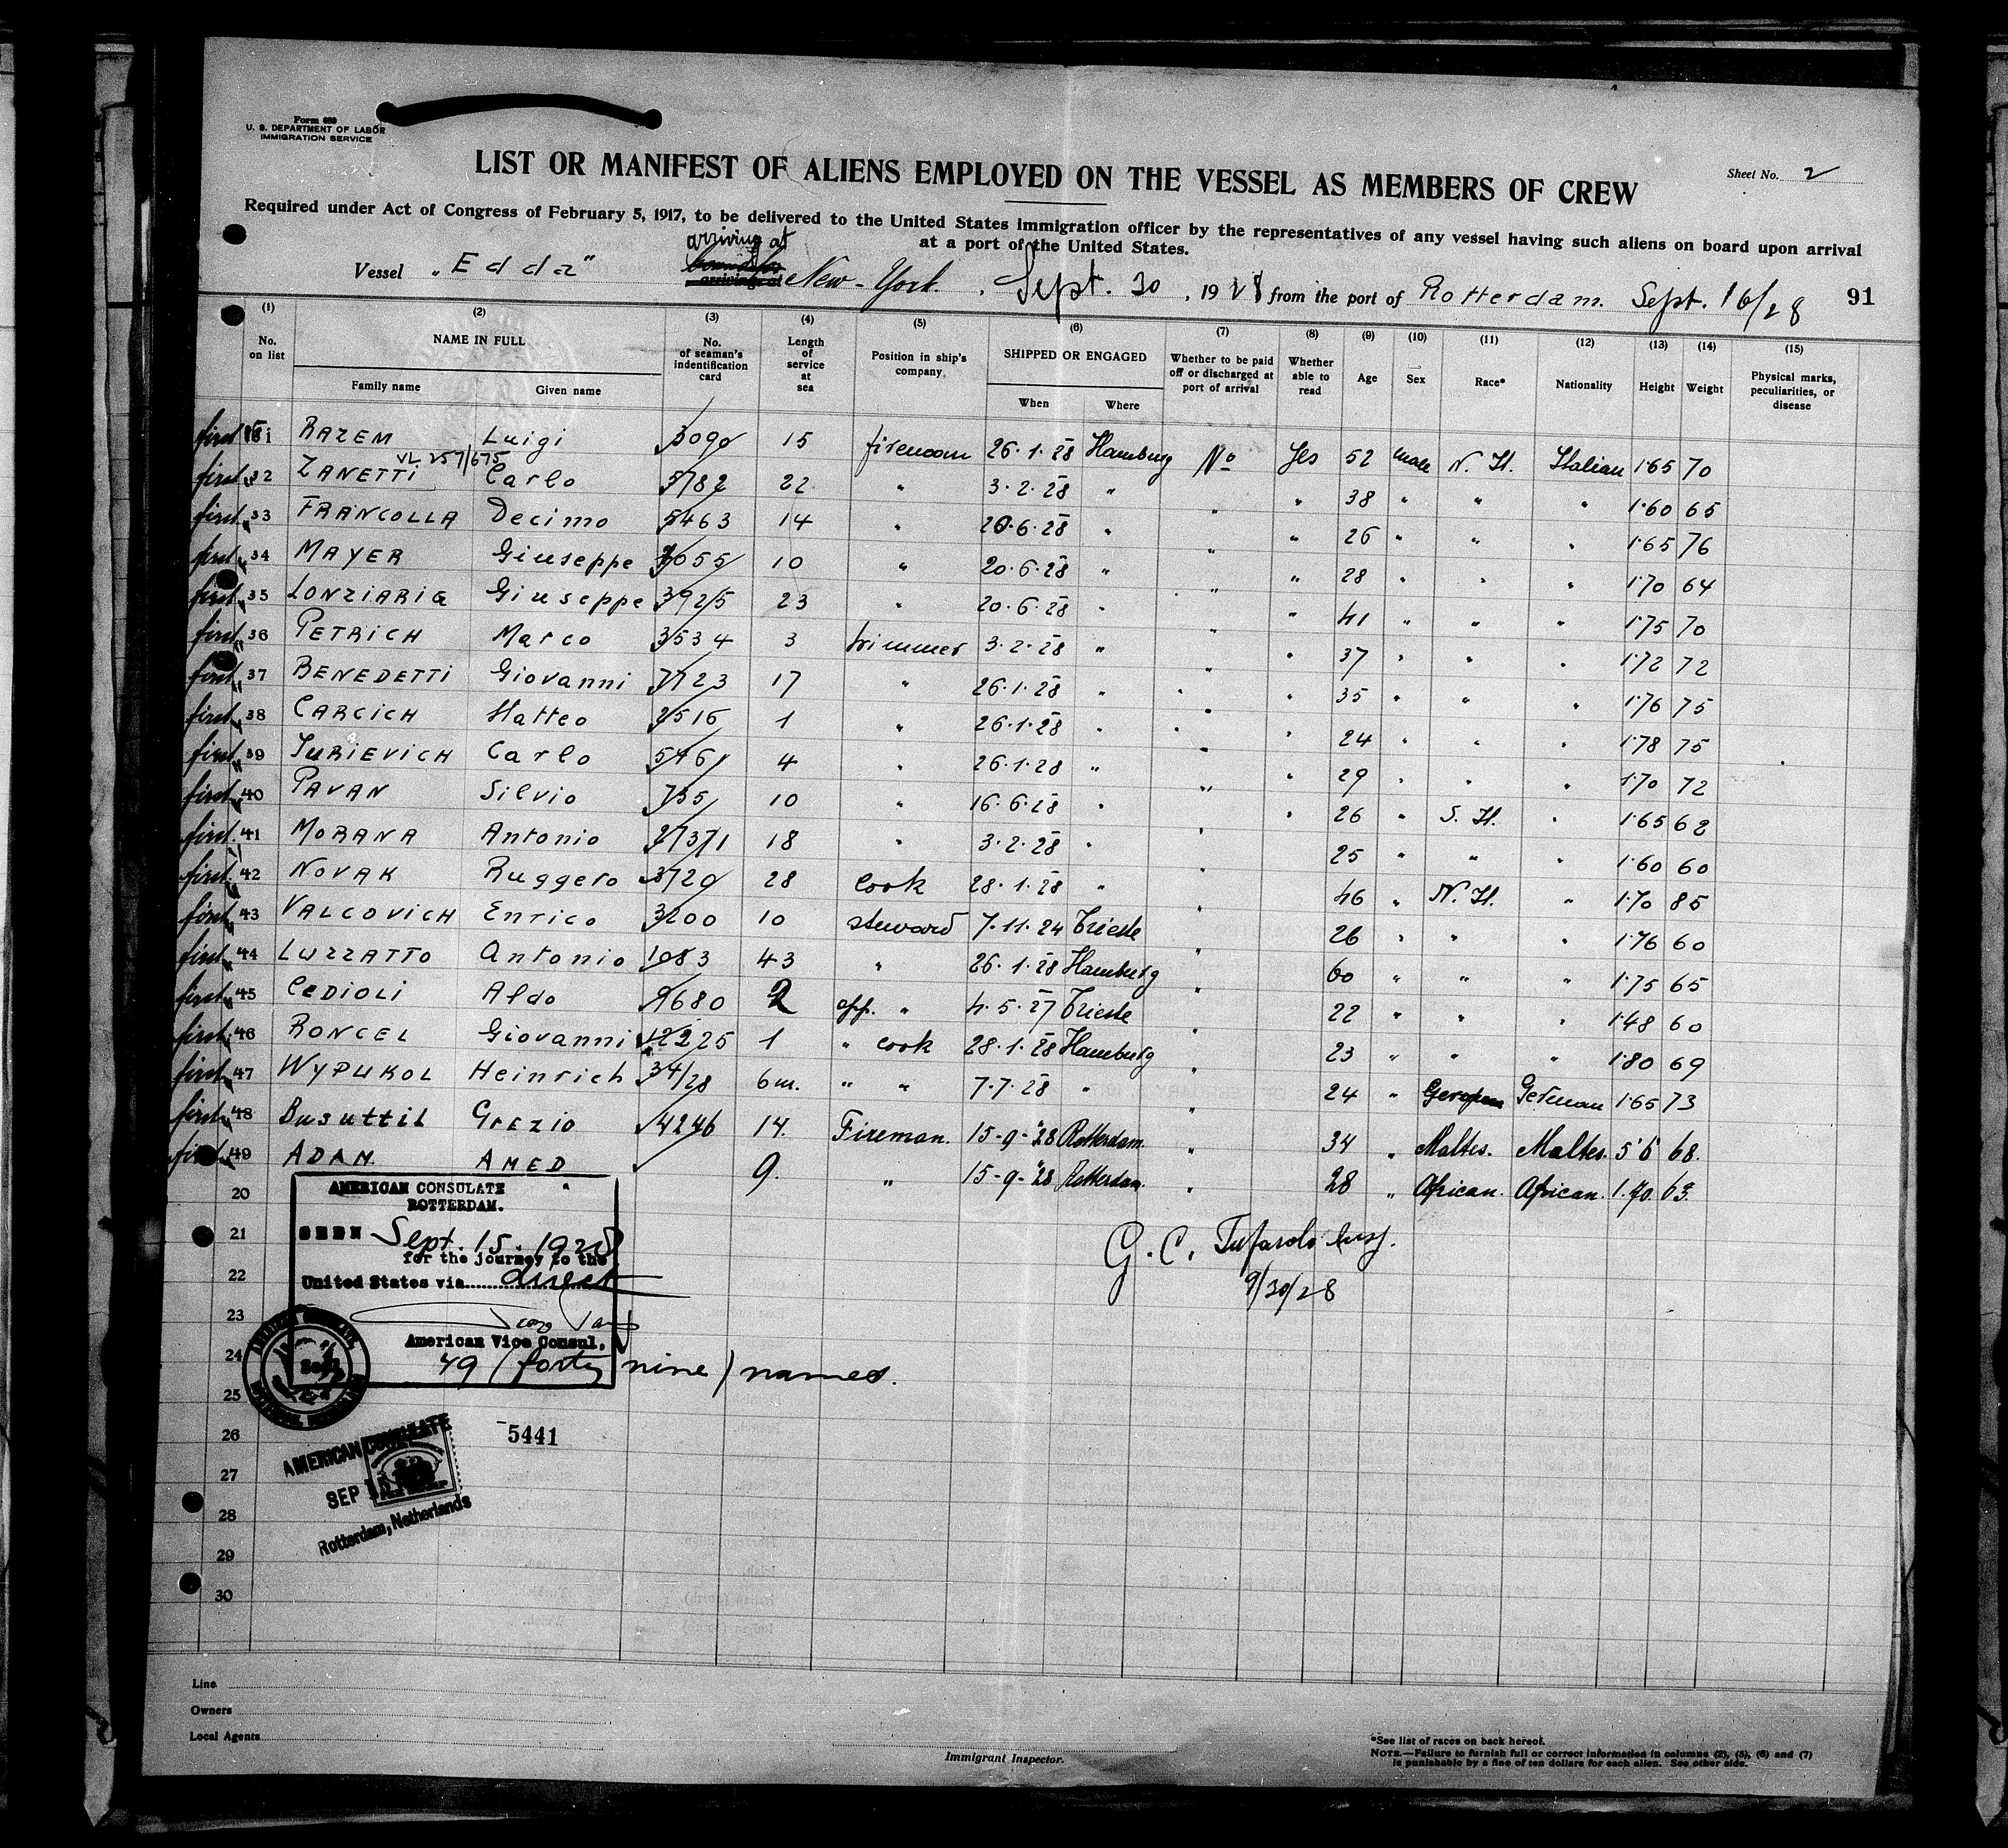 Form 689
U. S. DEPARTMENT OF LABOR
IMMIGRATION SERVICE
LIST OR MANIFEST OF ALIENS EMPLOYED ON THE VESSEL AS MEMBERS OF CREW
Sheet No. 2
Required under Act of Congress of February 5, 1917, to be delivered to the United States immigration officer by the representatives of any vessel having such aliens on board upon arrival
at a port of the United States.
arriving at
Vessel "Edda" arriving at New-York. , Sept. 30 , 1928 from the port of Rotterdam. Sept. 16/28 91
(1) (2) (3) (4) (5) (6) (7) (8) (9) (10) (11) (12) (13) (14) (15)
No. on list NAME IN FULL Family name Given name No. of seaman's indentification card Length of service at sea Position in ship's company SHIPPED OR ENGAGED When Where Whether to be paid off or discharged at port of arrival Whether able to read Age Sex Race* Nationality Height Weight Physical marks, peculiarities, or disease
first 31 RAZEM Luigi 3090 15 fireman 26.1.28 Hamburg No Yes 52 male N. It. Italian 1.65 70
VL 257/675
first " 32 ZANETTi Carlo 5782 22 " 3.2.28 " " " 38 " " " 1.60 65
first " 33 FRANCOLLA Decimo 5463 14 " 20.6.28 " " " 26 " " " 1.65 76
first " 34 MAYER Giuseppe 2055 10 " 20.6.28 " " " 28 " " " 1.70 64
first " 35 LONZIARIG Giuseppe 3925 23 " 20.6.28 " " " 41 " " " 1.75 70
first " 36 PETRICH Marco 3534 3 trimmer 3.2.28 " " " 37 " " " 1.72 72
first " 37 BENEDETTi Giovanni 7723 17 " 26.1.28 " " " 35 " " " 1.76 75
first " 38 CARCICH Matteo 2516 1 " 26.1.28 " " " 24 " " " 1.78 75
first " 39 JURIEVICH Carlo 5461 4 " 26.1.28 " " " 29 " " " 1.70 72
first " 40 PAVAN Silvio 755 10 " 16.6.28 " " " 26 " S. It. " 1.65 62
first " 41 MORANA Antonio 27371 18 " 3.2.28 " " 25 " " " 1.60 60
first " 42 NOVAK Ruggero 3720 28 cook 28.1.28 " " 46 " N. It. " 1.70 85
first " 43 VALCOVICH Enrico 3200 10 steward 7.11.24 Trieste " 26 " " " 1.76 60
first " 44 LUZZATTO Antonio 1083 43 " 26.1.28 Hamburg " 60 " " " 1.75 65
first " 45 CEDIOLI Aldo 9680 2 app. " 4.5.27 Trieste " 22 " " " 1.48 60
first " 46 RONCEL Giovanni 12225 1 " cook 28.1.28 Hamburg " 23 " " " 1.80 69
first " 47 WYPUKOL Heinrich 34/28 6m. " " 7.7.28 " " 24 " German German 1.65 73
first " 48 Busuttil Grezio 4246 14. Fireman. 15-9-28 Rotterdam. " 34 " Maltes. Maltes. 5'6 68.
first " 49 ADAM AMED 9. " 15-9-28 Rotterdam. " 28 " African. African. 1.70. 63.
20
AMERICAN CONSULATE
ROTTERDAM.
21
SEEN Sept. 15. 1928
for the journey to the
22
United States via direct
G. C. Tufarolo Insp.
9/30/28
23
American Vice Consul,
24
49 (forty nine) names.
25
26
5441
AMERICAN CONSULATE
27
SEP 15
28
Rotterdam, Netherlands
29
30
Line
Owners
Local Agents
Immigrant Inspector.
*See list of races on back hereof.
NOTE.—Failure to furnish full or correct information in columns (2), (5), (6) and (7)
is punishable by a fine of ten dollars for each alien. See other side.